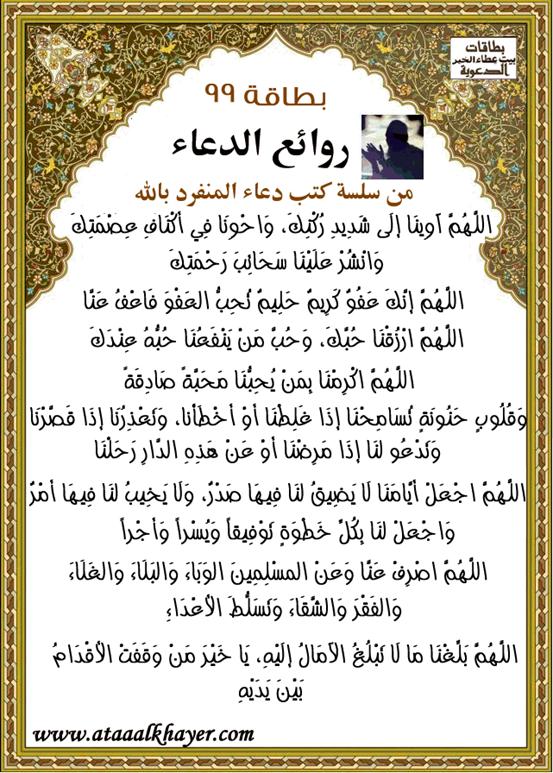 بطاقات
بيت عطاء الخير
الدعوية
بطاقة ٩٩
روائع الدعاء
من سلسة كتب دعاء المنفرد بالله
اللَّهُمَّ آوِينَا إِلَى شَدِيدِ رُكْنِكَ، وَاحْوِنَا فِي أَكْنَافِ عِصْمَتِكَ
وَانْشُرْ عَلَيْنَا سَحَائِبَ رَحْمَتِكَ
اللَّهُمَّ إِنَّكَ عَفُوٌّ كَرِيمٌ حَلِيمٌ تُحِبُّ العَفْوَ فَاعْفُ عَنَّا
اللَّهُمَّ ارْزُقْنَا حُبَّكَ، وَحُبَّ مَنْ يَنْفَعُنَا حُبُّهُ عِنْدَكَ
اللَّهُمَّ اكْرِمْنَا بِمَنْ يُحِبُّنَا مَحَبَّةً صَادِقَةً
وَقُلُوبٍ حَنُونَةٍ تُسَامِحْنَا إِذَا غَلِطْنَا أَوْ أَخْطَأْنا، وَتَعْذِرُنَا إِذَا قَصَّرْنَا
وَتَدْعُو لَنَا إِذَا مَرِضْنَا أَوْ عَنْ هَذِهِ الدَّارِ رَحَلْنَا
اللَّهُمَّ اجْعَلْ أَيَّامَنَا لَا يَضِيقُ لَنَا فِيهَا صَدْرٌ، وَلَا يَخِيبُ لَنَا فِيهَا أَمْرٌ
وَاجْعَلْ لَنَا بِكُلِّ خَطْوَةٍ تَوْفِيقاً وَيُسْراً وَأَجْراً
اللَّهُمَّ اصْرِفْ عَنَّا وَعَنْ المسْلِمِينَ الوَبَاءَ وَالبَلَاءَ وَالغَلَاءَ
وَالفَقْرَ وَالشَّقَاءَ وَتَسَلُّطَ الأَعْدَاءِ
اللَّهُمَّ بَلِّغْنَا مَا لَا تَبْلُغُ الآمَالُ إِلَيْهِ، يَا خَيْرَ مَنْ وَقَفَتْ الأَقْدَامُ
بَيْنَ يَدَيْهِ
www.ataaalkhayer.com